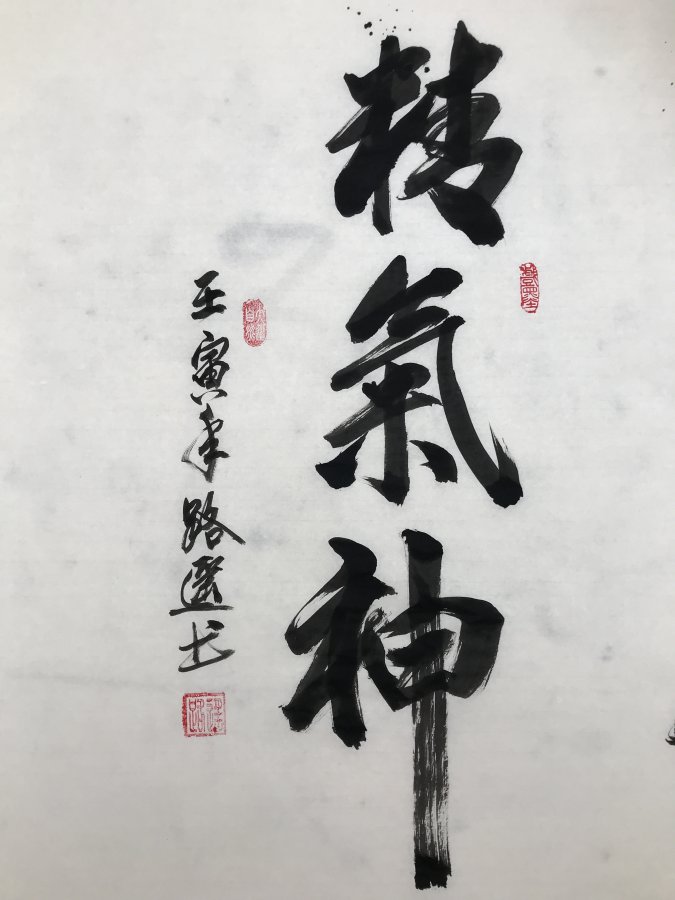 精氣神
壬寅年路遥书